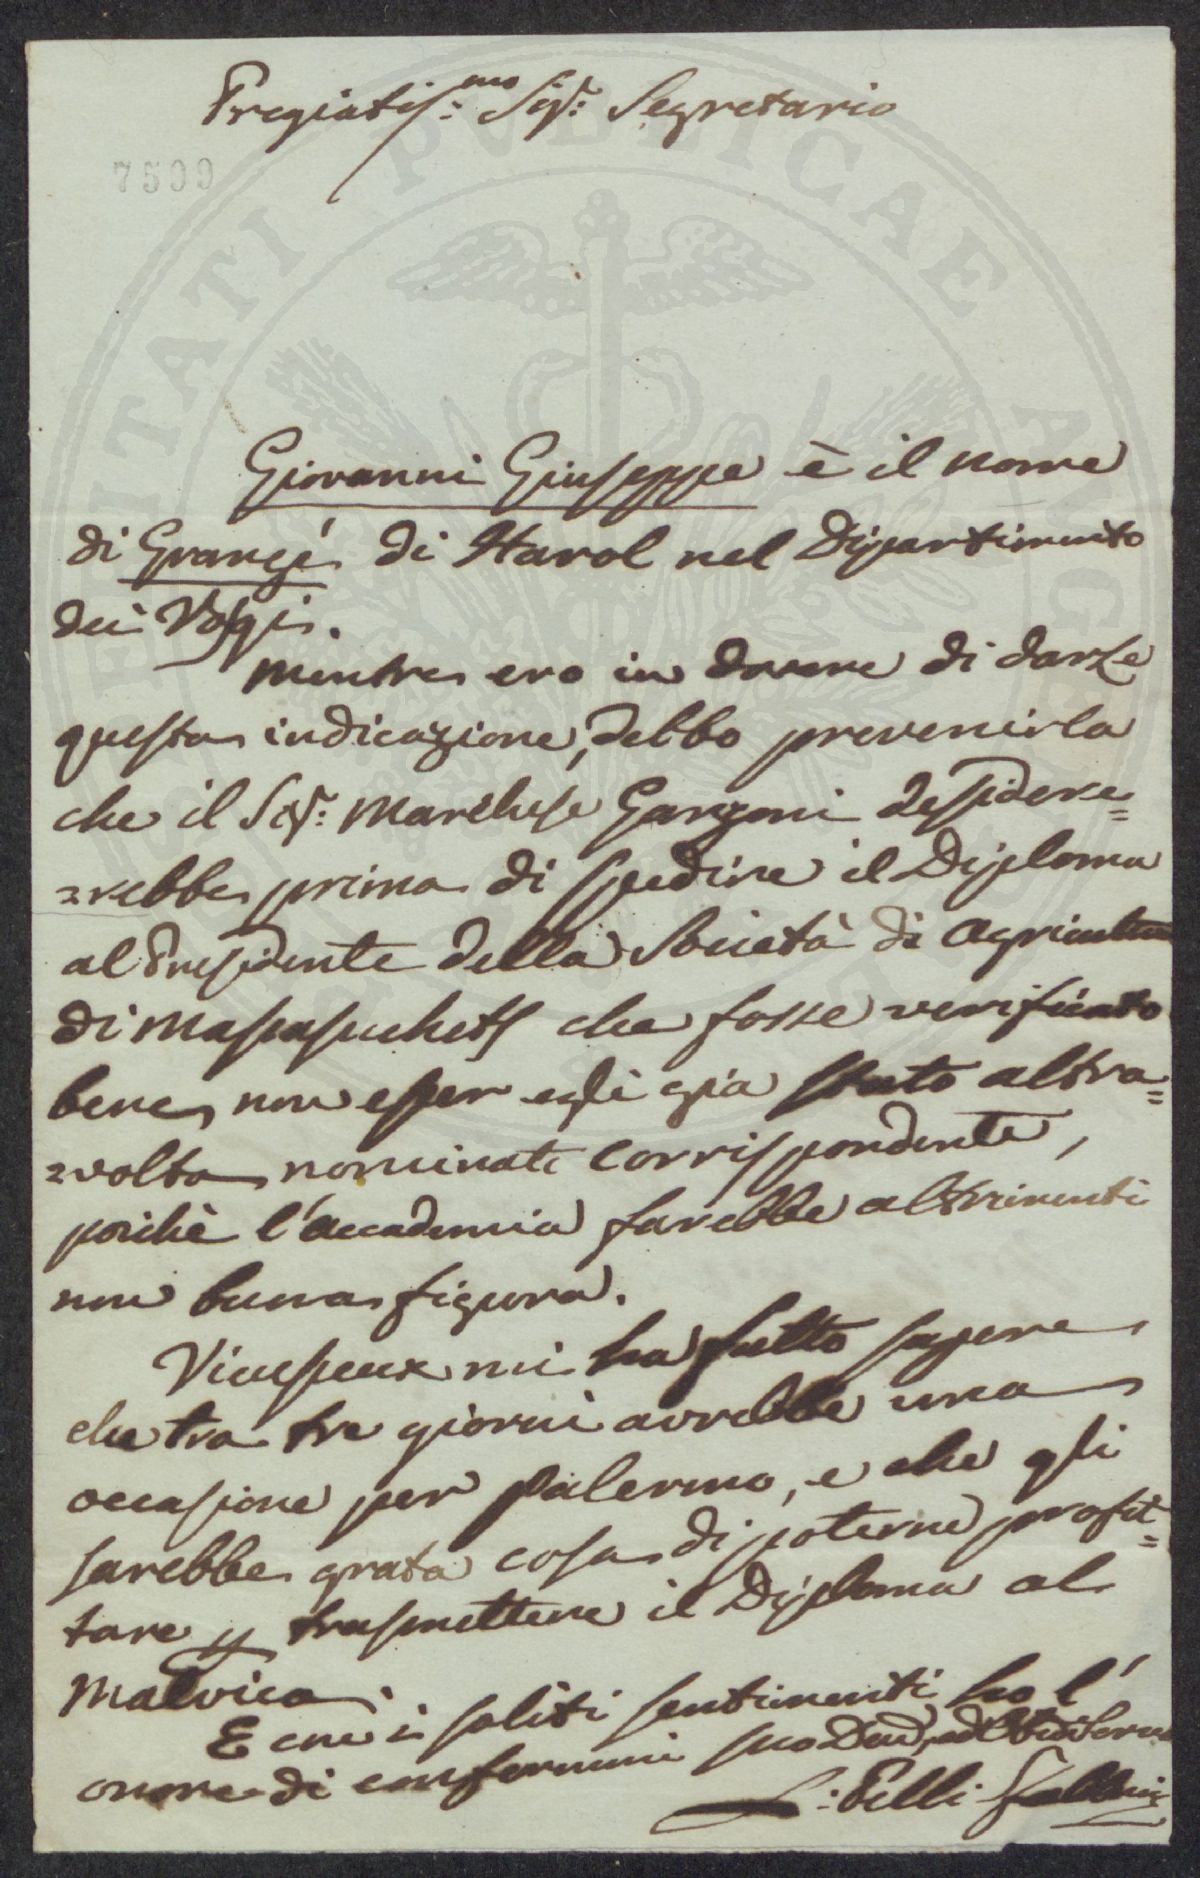 Pregiatis.mo Sigr: Segretario
7509
Giovanni Giuseppe è il nome
di Grangé di Harol nel Dipartimento
dei Vosgi.
Mentre ero in dovere di darle
questa indicazione, debbo prevenirla
che il Sigr: Marchese Garzoni desidere=
=rebbe prima di spedire il Diploma
al Presidente della Società di Agricultura
di Massassuchets che fosse verificato
bene, non esser egli già stato altra=
=volta nominato Corrispondente,
poichè l'Accademia farebbe altrimenti
non buona figura.
Vieusseux mi ha fatto sapere
che tra tre giorni avrebbe una
occasione per Palermo, e che gli
sarebbe grata cosa di poterne profit=
tare p trasmettere il Diploma al
Malvica.
E con i soliti sentimenti ho l'
onore di confermarmi suo
L: Pelli Fabbroni
PUBLICAE